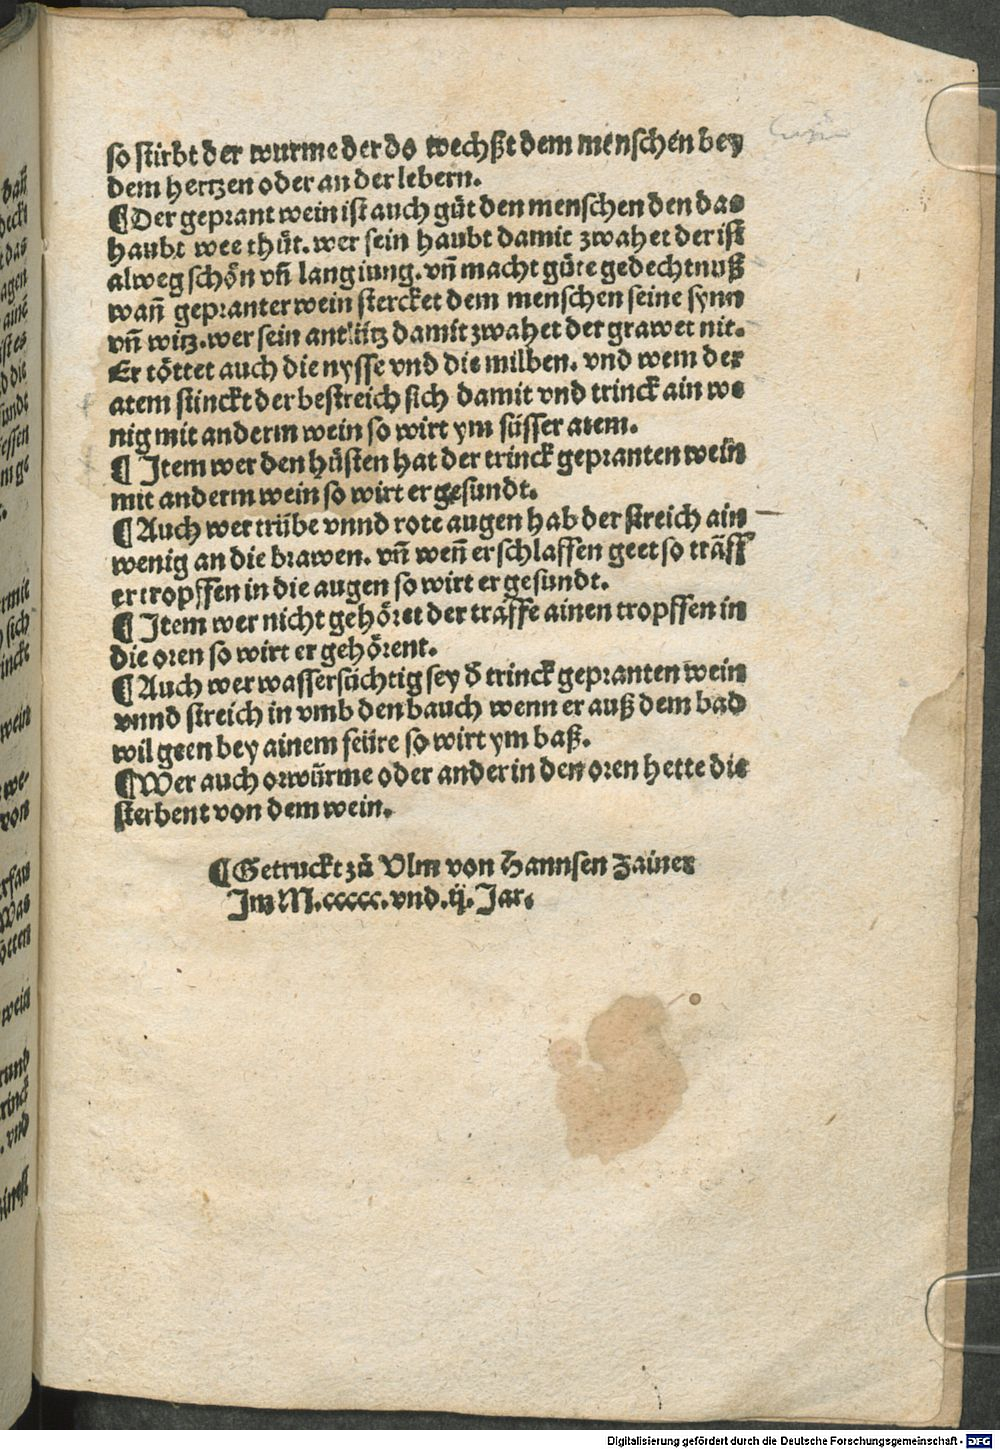 so stirbt der wurme der do wechßt dem menschen bey
dem hertzen oder an der lebern.
¶ Der geprant wein ist auch gůt den menschen den das
haubt wee thůt. wer sein haubt damit zwahet der ist
alweg schön vñ lang iung. vñ macht gůte gedechtnuß
wañ gepranter wein stercket dem menschen seine synn
vñ witz. wer sein antlütz damit zwahet der grawet nit.
Er töttet auch die nysse vnd die milben. vnd wem der
atem stinckt der bestreich sich damit vnd trinck ain we
nig mit anderm wein so wirt ym süsser atem.
¶ Item wer den hůsten hat der trinck gepranten wein
mit anderm wein so wirt er gesundt.
¶ Auch wer trübe vnnd rote augen hab der streich ain
wenig an die brawen. vñ weñ er schlaffen geet so träff
er tropffen in die augen so wirt er gesundt.
¶ Item wer nicht gehöret der träffe ainen tropffen in
die oren so wirt er gehörent.
¶ Auch wer wassersüchtig sey d̄ trinck gepranten wein
vnnd streich in vmb den bauch wenn er auß dem bad
wil geen bey ainem feüre so wirt ym baß.
¶ Wer auch orwürme oder ander in den oren hette die
sterbent von dem wein.
¶ Getruckt zů Vlm von Hannsen Zainer
Im M.ccccc.vnd.ij. Jar.
Digitalisierung gefördert durch die Deutsche Forschungsgemeinschaft - DFG